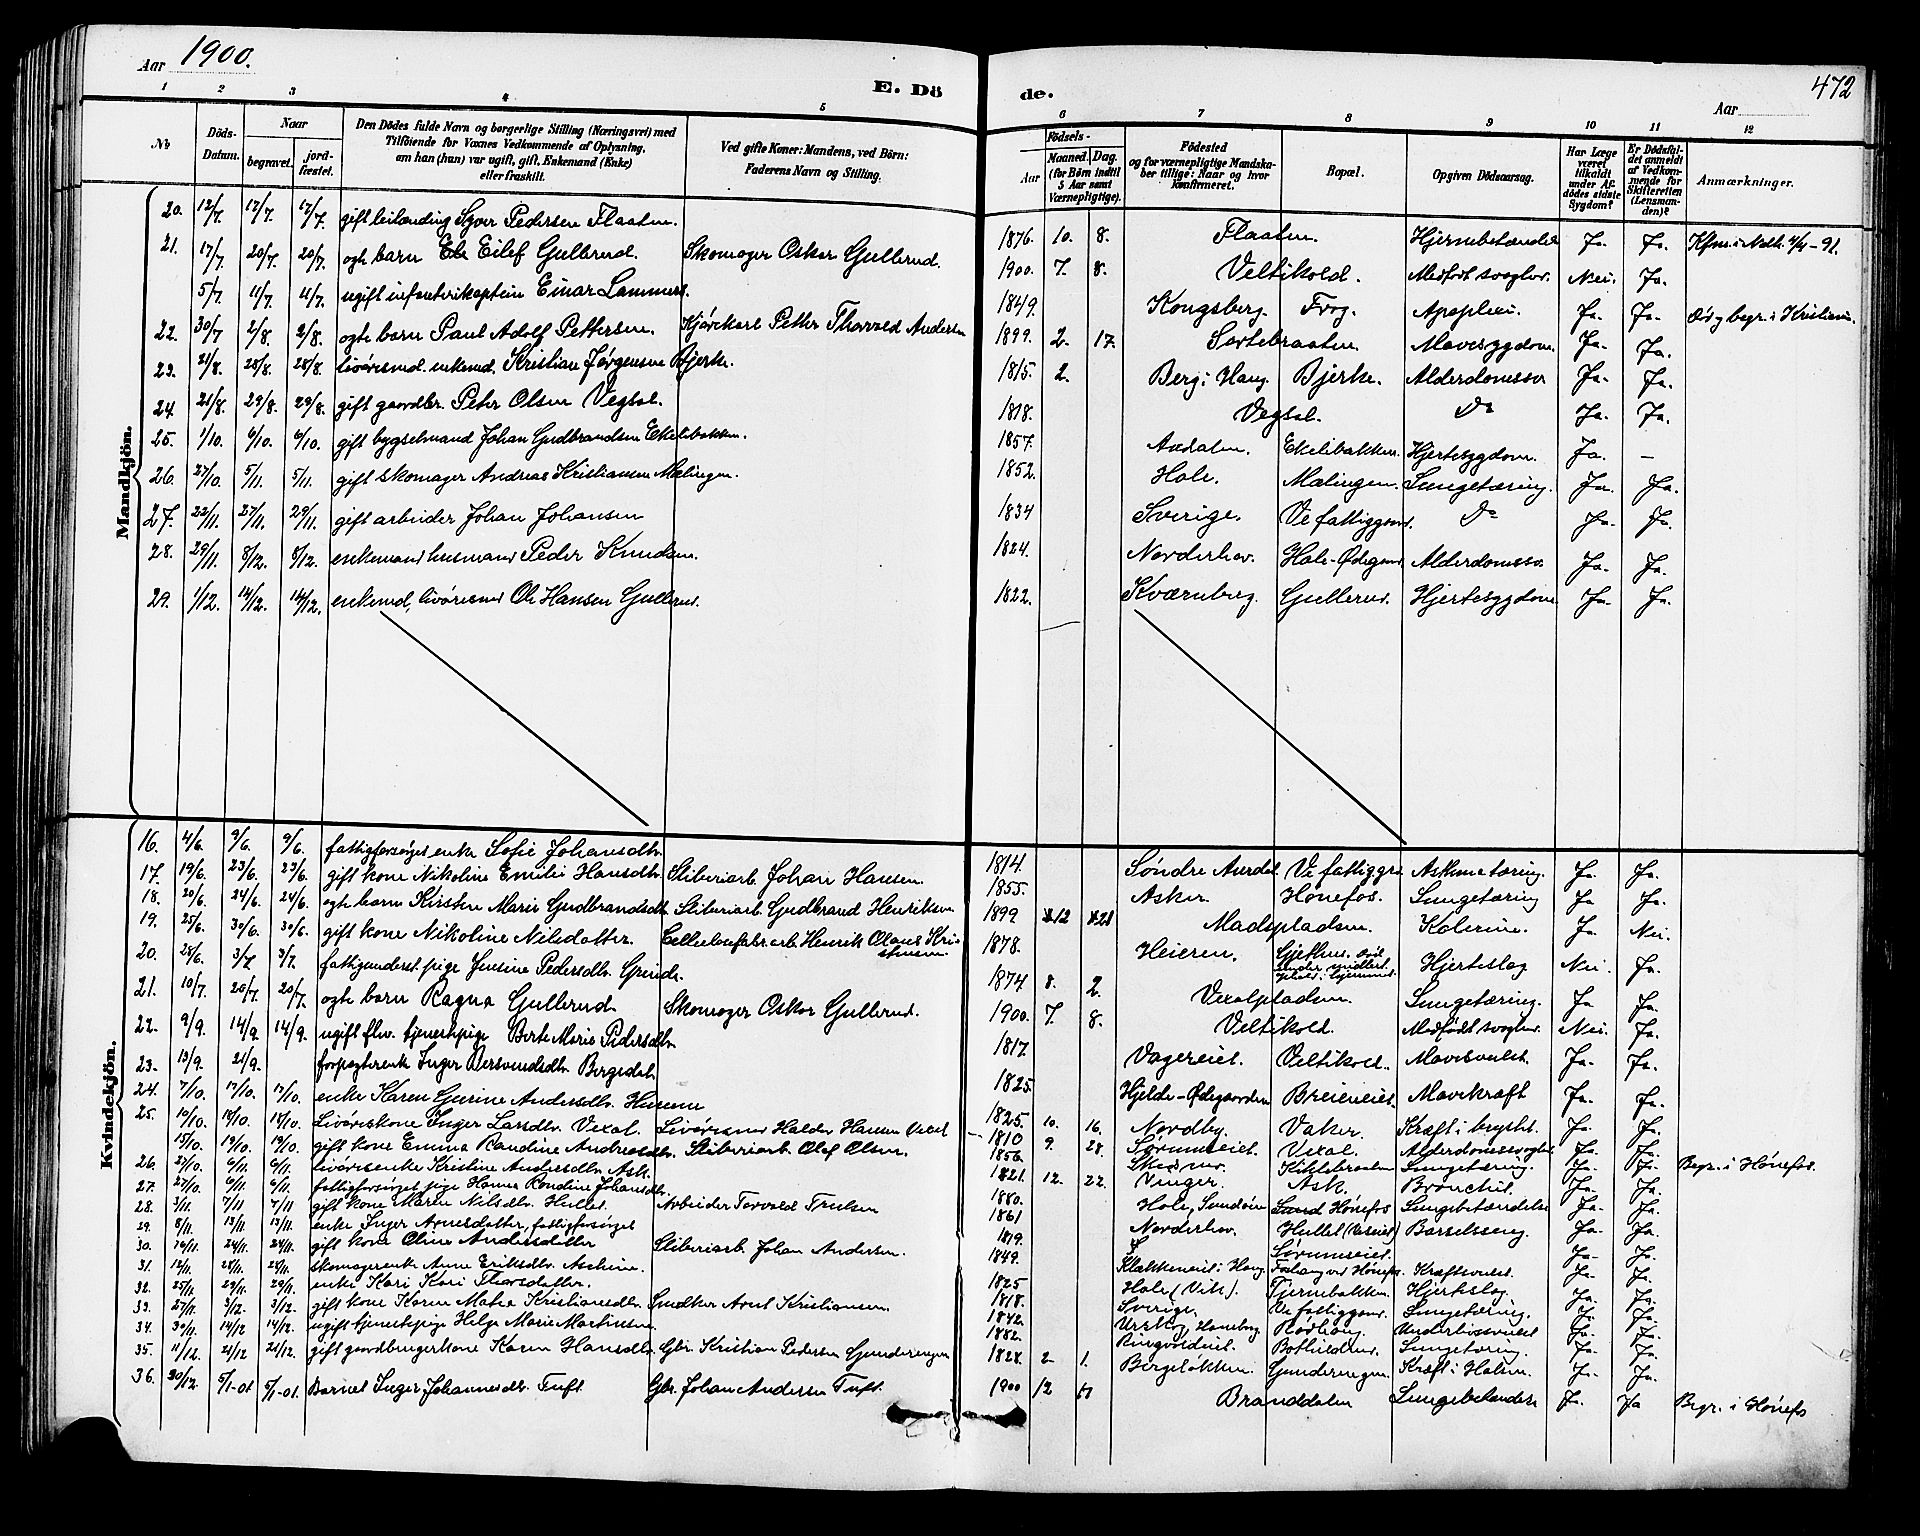 Aar 1900.
E. Dö
de.
Aar
472
1 2 3 4 5 6 7 8 9 10 11 12
No
Döds-Datum.
Naar
begravet.
jord-fæstet.
Den Dödes fulde Navn og borgerlige Stilling (Næringsvei) med
Tilföiende for Voxnes Vedkommende af Oplysning,
om han (hun) var ugift, gift, Enkemand (Enke)
eller fraskilt.
Ved gifte Koner: Mandens, ved Börn:
Faderens Navn og Stilling.
Födsels-
Aar
Maaned. Dag.
(for Börn indtil
5 Aar samt
Værnepligtige).
Födested
og for værnepligtige Mandska-
ber tillige: Naar og hvor
konfirmeret.
Bopæl.
Opgiven Dödsaarsag.
Har Læge
været
tilkaldt
under Af-
dödes sidste
Sygdom?
Er Dödsfal-
det anmeldt
af Vedkom-
mende for
Skifteretten
(Lensman-
den)?
Anmærkninger.
Mandkjön.
20. 12/7. 17/7. 17/7. gift leilending Syver Pedersen Flaaten. 1876. 10. 8. Flaaten. Ja. Ja.
21. 17/7. 20/7. 20/7. ogte barn Eilef Gullerud. Skomager Oskar Gullerud. 1900. 7. 8. Veltikold. Medfødt Nei. Ja.
5/7. 11/7. 11/7. ugift infanterikaptein Einar Lammers. 1849. Kongsberg. Frog. Ja. Ja.
22. 30/7 2/8. 2/8. ogte barn Paul Adolf Pettersen. Petter Thorvald Andersen 1899. 2. 17. Sortebraaten. Mavesygdom. Ja. Ja.
23. 21/8. 28/8. 28/8. enkemd. Kristian Jørgensen Bjerke. 1815. 2. Berg i Haug. Bjerke. Ja. Ja.
24. 21/8. 29/8. 29/8. gift gaardbr. Peter Olsen Vegsal. 1818. Vegsal. Do Ja. Ja.
25. 1/10. 6/10. 6/10. gift bygselmand Johan Gudbrandsen Ekelibakken. 1857. Aadalen. Ekelibakken. Hjertesygdom. Ja. —
26. 27/10. 5/11. 5/11. gift skomager Andreas Kristiansen Mælingen. 1852. Hole. Mælingen. Lungetæring. Ja. Ja.
27. 22/11. 27/11. 29/11. gift arbeider Johan Johansen 1834 Sverige. Ve fattiggaard. Do Ja. Ja.
28. 29/11. 8/12. 8/12. enkemand husmand Peder Knudsen. 1824. Norderhov. Hole-Ødegaard Ja. Ja.
29. 1/12. 14/12. 14/12. enkemd, Ole Hansen Gullerud. 1822. Kværnberg. Gullerud. Hjertesygdom Ja. Ja.
Kvindekjön.
16. 4/6. 9/6. 9/6. fattigforsørget enke Sofie Johansdtr. 1814. Søndre Aurdal. Ve fattiggrd. Ja. Ja.
17. 19/6. 23/6. 23/6. gift kone Nikoline Emilie Hansdtr. Sliberiarb. Johan Hansen. 1855. Asker. Hønefos. Lungetæring Ja Ja.
18. 20/6. 24/6. 24/6. ogte barn Kirsten Marie Gudbrandsdtr. Sliberiarb. Gudbrand Henriksen 1899. 12 28 Madspladsen. Kolerine. Ja. Nei.
19. 25/6. 30/6. 30/6. gift kone Nikoline Nilsdatter. Cellulosefabr.arb. Henrik Olaus Kristiansen 1878. Heieren. Hjerteslag Nei. Ja.
20. 28/6. 3/7. 3/7. fattigunderst. pige Jensine Pedersdtr. 1874 8. 2. Vexalpladsen. Lungetæring. Ja Ja.
21. 10/7. 20/7. 20/7. ogte barn Ragna Gullerud. Skomager Oskar Gullerud. 1900. 7. 8. Veltikold. Medfødt Nei. Ja.
22. 9/9. 14/9. 14/9. ugift tjenestepige Berte Marie Pedersdtr. 1817. Vagereiet. Veltikold. Ja. Ja.
23. 13/9. 21/9. Inger 1825. Hjelde-Ødegaarden Breieneiet. Mavekræft Ja. Ja.
24. 7/10. 17/10. 17/10. enke Karen Gurine Andersdtr. 1825. 10. 16. Nordby. Vaker. Kræft i brystet. Ja. Ja.
25. 10/10. 18/10. 18/10. Inger Larsdtr. Vexal. Halvor Hansen Vexal 1810 9. 28. Sørumseiet. Vexal. Ja. Ja.
15/10. 19/10. 19/10. gift kone Emma Randine Andreasdtr. Sliberiarb. Olaf Olsen. 1856. Lungetæring. Ja. Ja. Begr. i Hønefos.
26. 27/10. 6/11. 6/11. Kristine Andersdtr. Ask. 1821. 12. 22. Vinger. Ask. Bronchit. Ja. Ja.
27. 27/10. 6/11. 6/11. fattigforsørget pige Hanna Randine Johansdtr. 1880. Hole, Hønefos. Lungebetændelse Ja. Ja.
28. 3/11. 7/11 7/11 gift kone Maren Nilsdtr. Hullet. Arbeider Torvald Trulsen 1861 Norderhov. Hullet Barselseng. Ja. Ja.
29. 8/11. 13/11. 13/11. enke Inger Arnesdatter, fattigforsørget 1819. Sørumseiet. Ja. Ja.
30. 16/11. 24/11. 24/11. gift kone Oline Andersdatter Sliberiarb. Johan Andersen. 1849. i Haug. ved Hønefos. Kræftsvulst. Ja. Ja.
31. 12/11. 28/11. 28/11. skomagerenke Anne Eriksdtr. 1825 Hole (Vik). Tjernsbakken. Hjerteslag. Ja. Ja.
32. 25/11. 29/11. 29/11. enke Kari Thorsdatter. 1818. Sverige. Ve fattiggaard. Lungetæring. Ja. Ja.
33. 27/11. 3/12. 3/12. gift kone Karen Mathea Kristiansdtr. Snedker Arnt Kristiansen. 1842. Underlivssvulst Ja. Ja.
34. 30/11. 14/12 14/12. ugift tjenestepige Helga Marie 1882. Lungetæring. Ja. Ja.
35. 11/12. 21/12 21/12. gift gaardbrugerkone Karen Hansdtr. Gbr. Kristian Pedersen Gunderengen 1828. 2 1. Birgeløkken. Gunderengen. Kræft i Halsen. Ja. Ja.
36. 30/12. 5/1-01 5/1-01. Barnet Inger Johannesdtr. Tuft. Gbr. Johan Andersen Tuft. 1900 12 17 Branddalen Lungebetændelse Ja. Ja Begr. i Hønefos